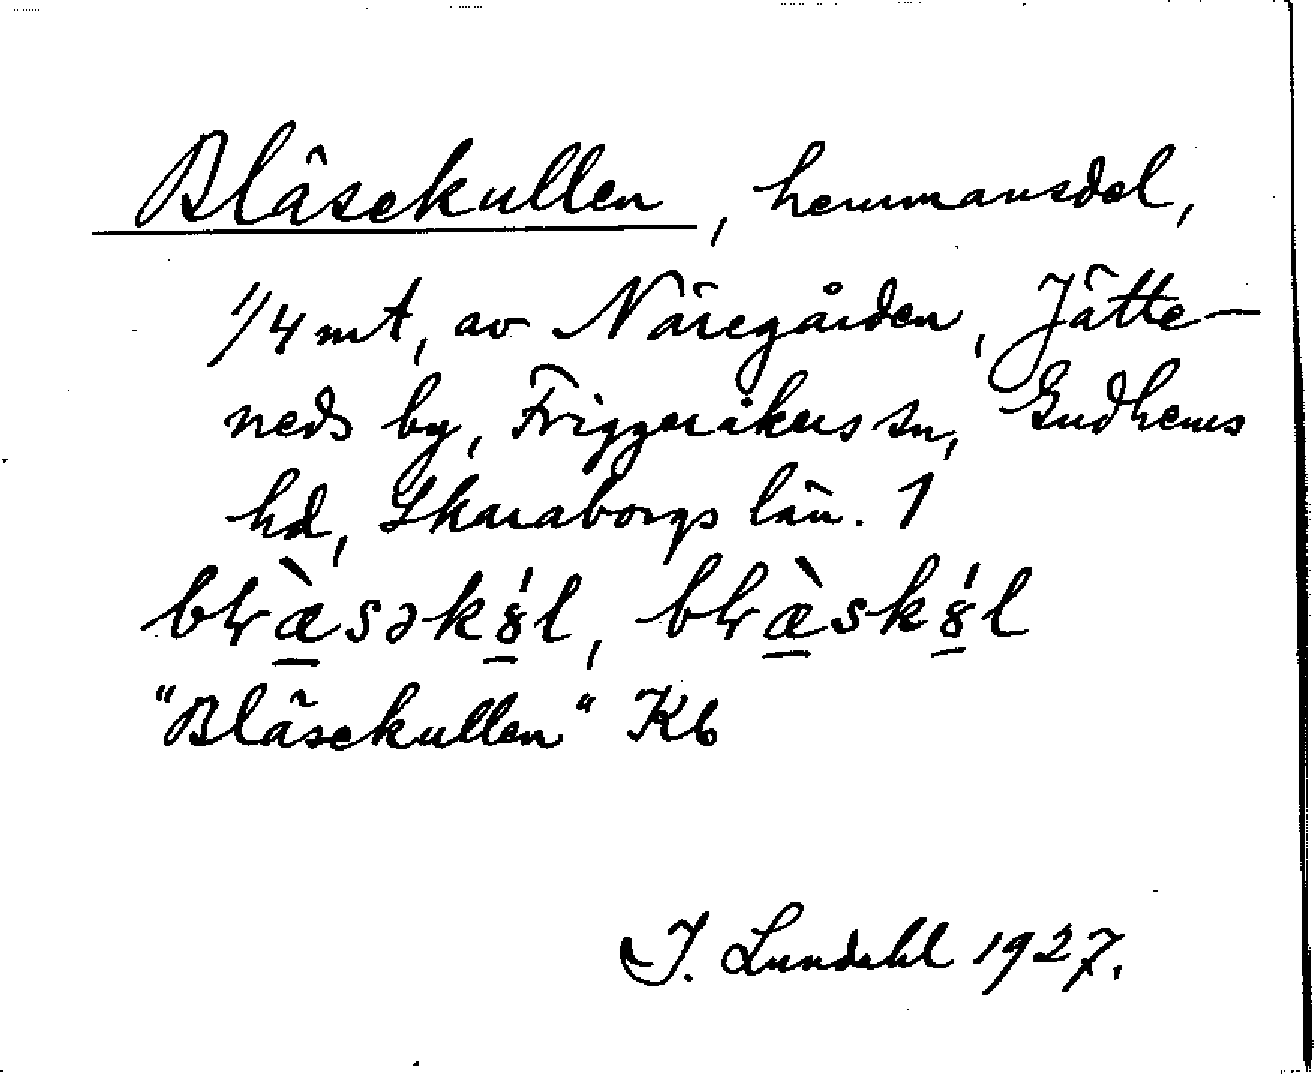 Bläsekullen, hemmansdel,
1/4 mt, av Näregården, Jätte-
neds by, Friggeråkers sn, Gudhems
hd, Skaraborgs län. 1
"Bläsekullen" Kb
I. Lundahl 1927.